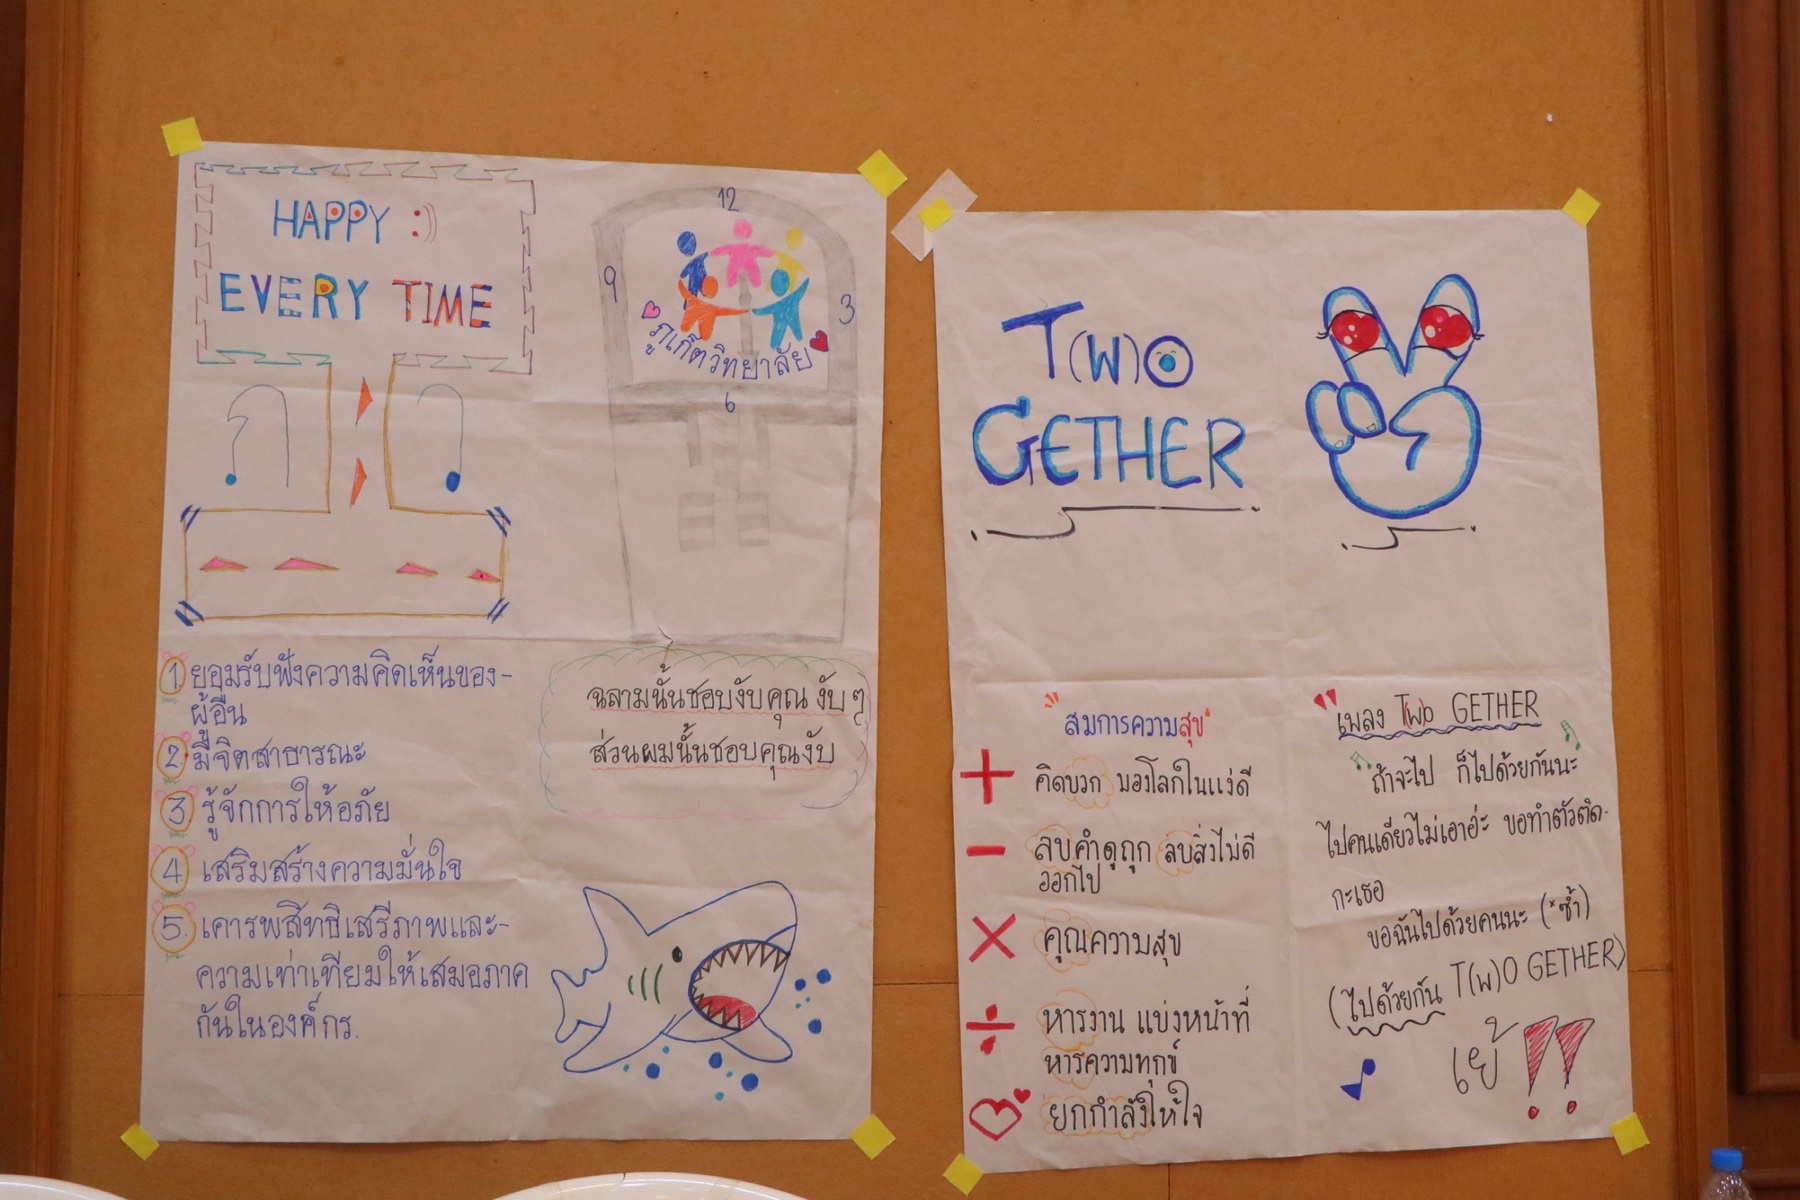 HAPPY :))
EVERY TIME
12
9
3
6
ภูเก็ตวิทยาลัย
1 ยอมรับฟังความคิดเห็นของ-
ผู้อื่น
2. มีจิตสาธารณะ
3 รู้จักการให้อภัย
4 เสริมสร้างความมั่นใจ
5. เคารพสิทธิเสรีภาพและ-
ความเท่าเทียมให้เสมอภาค
กันในองค์กร.
ฉลามนั้นชอบงับคุณ งับ ๆ
ส่วนผมนั้นชอบคุณงับ
T(W)O
GETHER
สมการความสุข
+ คิดบวก มองโลกในแง่ดี
- ลบคำดูถูก ลบสิ่งไม่ดี
ออกไป
× คูณความสุข
÷ หารงาน แบ่งหน้าที่
หารความทุกข์
ยกกำลังให้ใจ
เพลง T(w)O GETHER
ถ้าจะไป ก็ไปด้วยกันนะ
ไปคนเดียวไม่เอาอ่ะ ขอทำตัวติด-
กะเธอ
ขอฉันไปด้วยคนนะ (*ซ้ำ)
(ไปด้วยกัน T(W)O GETHER)
เย้ !!